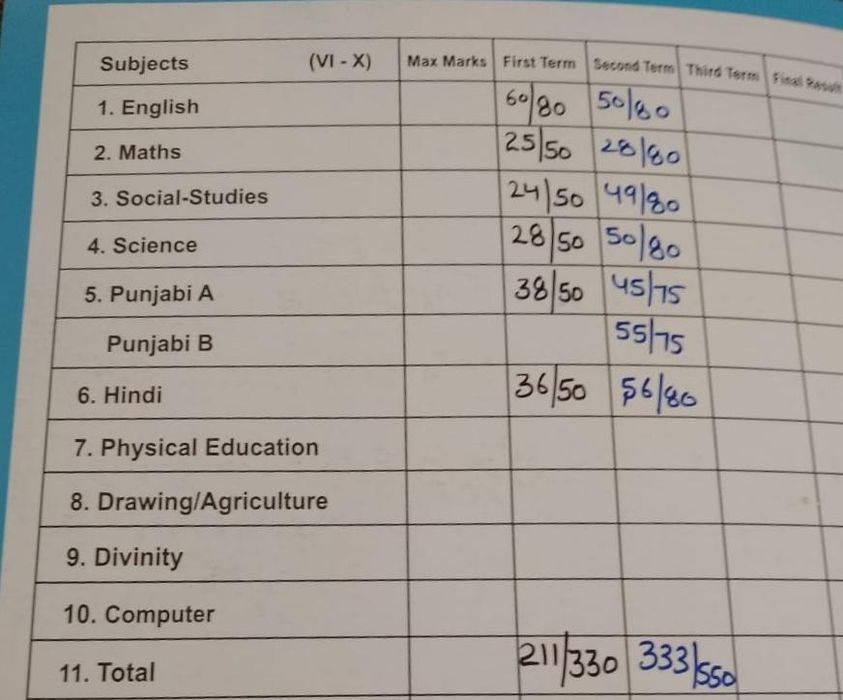 Subjects (VI - X) Max Marks First Term Second Term Third Term Final Result
1. English 60/80 50/80
2. Maths 25/50 28/80
3. Social-Studies 24/50 49/80
4. Science 28/50 50/80
5. Punjabi A 38/50 45/75
Punjabi B 55/75
6. Hindi 36/50 56/80
7. Physical Education
8. Drawing/Agriculture
9. Divinity
10. Computer
11. Total 211/330 333/550